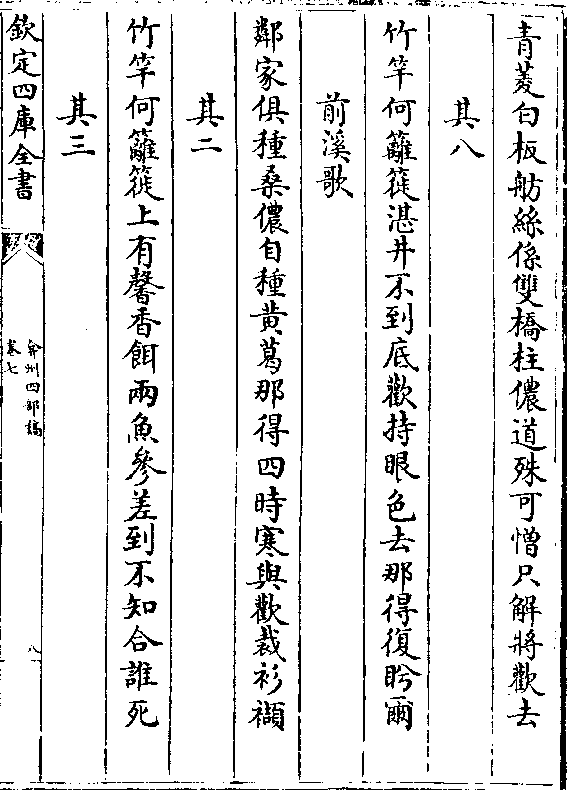 青菱白板舫絲係雙橋柱儂道殊可憎只解將歡去
其八
竹竿何籬簁湛井不到底歡持眼色去那得復盻爾
前溪歌
鄰家俱種桑儂自種黄葛那得四時寒與歡裁衫襭
其二
竹竿何籬簁上有馨香餌兩魚參差到不知合誰死
其三
欽定四庫全書
弇州四部稿
卷七
八